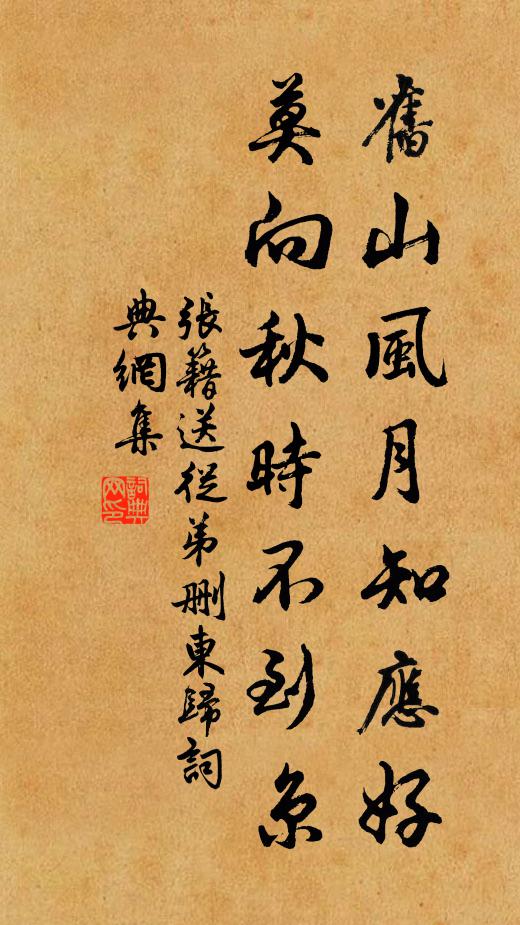 舊山風月知應好
莫向秋時不到京
張籍送從弟刪東歸詞
典網集
詞典網印